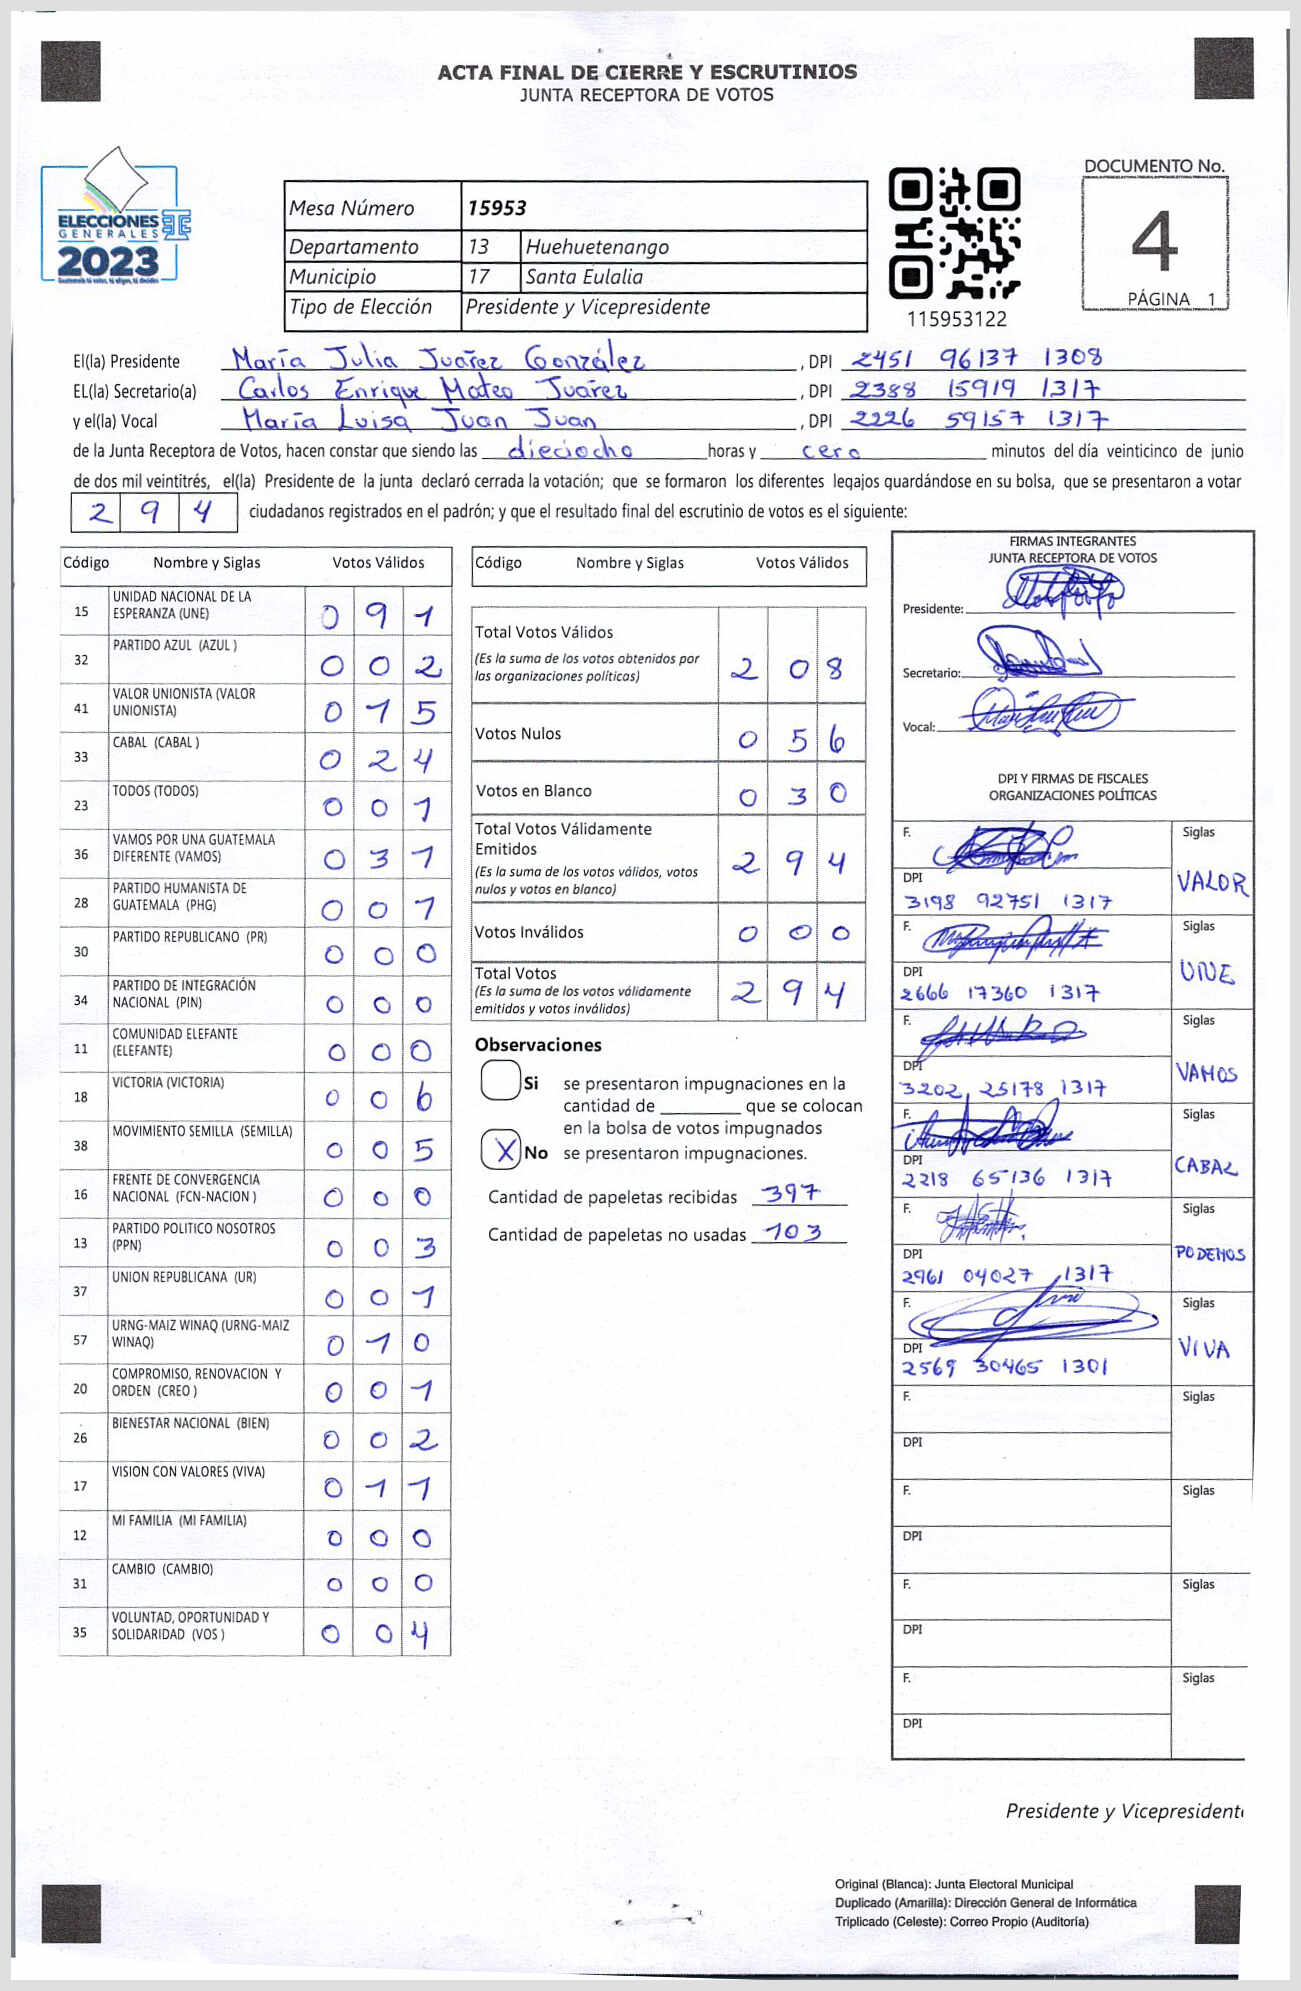 ACTA FINAL DE CIERRE Y ESCRUTINIOS
JUNTA RECEPTORA DE VOTOS
ELECCIONES
GENERALES
2023
Mesa Número 15953
Departamento 13 Huehuetenango
Municipio 17 Santa Eulalia
Tipo de Elección Presidente y Vicepresidente
115953122
DOCUMENTO No.
4
PÁGINA 1
El(la) Presidente María Julia Juárez González, DPI 2451 96137 1308
EL(la) Secretario(a) Carlos Enrique Mateo Juárez, DPI 2388 15919 1317
y el(la) Vocal María Luisa Juan Juan, DPI 2226 59157 1317
de la Junta Receptora de Votos, hacen constar que siendo las dieciocho horas y cero minutos del día veinticinco de junio
de dos mil veintitrés, el(la) Presidente de la junta declaró cerrada la votación; que se formaron los diferentes legajos guardándose en su bolsa, que se presentaron a votar
294 ciudadanos registrados en el padrón; y que el resultado final del escrutinio de votos es el siguiente:
Código Nombre y Siglas Votos Válidos
15 UNIDAD NACIONAL DE LA ESPERANZA (UNE) 091
32 PARTIDO AZUL (AZUL ) 002
41 VALOR UNIONISTA (VALOR UNIONISTA) 015
33 CABAL (CABAL ) 024
23 TODOS (TODOS) 001
36 VAMOS POR UNA GUATEMALA DIFERENTE (VAMOS) 031
28 PARTIDO HUMANISTA DE GUATEMALA (PHG) 001
30 PARTIDO REPUBLICANO (PR) 000
34 PARTIDO DE INTEGRACIÓN NACIONAL (PIN) 000
11 COMUNIDAD ELEFANTE (ELEFANTE) 000
18 VICTORIA (VICTORIA) 006
38 MOVIMIENTO SEMILLA (SEMILLA) 005
16 FRENTE DE CONVERGENCIA NACIONAL (FCN-NACION ) 000
13 PARTIDO POLITICO NOSOTROS (PPN) 003
37 UNION REPUBLICANA (UR) 001
57 URNG-MAIZ WINAQ (URNG-MAIZ WINAQ) 010
20 COMPROMISO, RENOVACION Y ORDEN (CREO ) 001
26 BIENESTAR NACIONAL (BIEN) 002
17 VISION CON VALORES (VIVA) 011
12 MI FAMILIA (MI FAMILIA) 000
31 CAMBIO (CAMBIO) 000
35 VOLUNTAD, OPORTUNIDAD Y SOLIDARIDAD (VOS ) 004
Código Nombre y Siglas Votos Válidos
Total Votos Válidos
(Es la suma de los votos obtenidos por
las organizaciones políticas) 208
Votos Nulos 056
Votos en Blanco 030
Total Votos Válidamente
Emitidos
(Es la suma de los votos válidos, votos
nulos y votos en blanco) 294
Votos Inválidos 000
Total Votos
(Es la suma de los votos válidamente
emitidos y votos inválidos) 294
Observaciones
Si se presentaron impugnaciones en la
cantidad de ________ que se colocan
en la bolsa de votos impugnados
X No se presentaron impugnaciones.
Cantidad de papeletas recibidas 397
Cantidad de papeletas no usadas 103
FIRMAS INTEGRANTES
JUNTA RECEPTORA DE VOTOS
Presidente:
Secretario:
Vocal:
DPI Y FIRMAS DE FISCALES
ORGANIZACIONES POLÍTICAS
F. Siglas
DPI VALOR
3198 92751 1317
F. Siglas
DPI UNE
2666 17360 1317
F. Siglas
DPI VAMOS
3202 25178 1317
F. Siglas
DPI CABAL
2218 65136 1317
F. Siglas
DPI PODEMOS
2961 04027 1317
F. Siglas
DPI VIVA
2569 30465 1301
F. Siglas
DPI
F. Siglas
DPI
F. Siglas
DPI
F. Siglas
DPI
Presidente y Vicepresident
Original (Blanca): Junta Electoral Municipal
Duplicado (Amarilla): Dirección General de Informática
Triplicado (Celeste): Correo Propio (Auditoría)